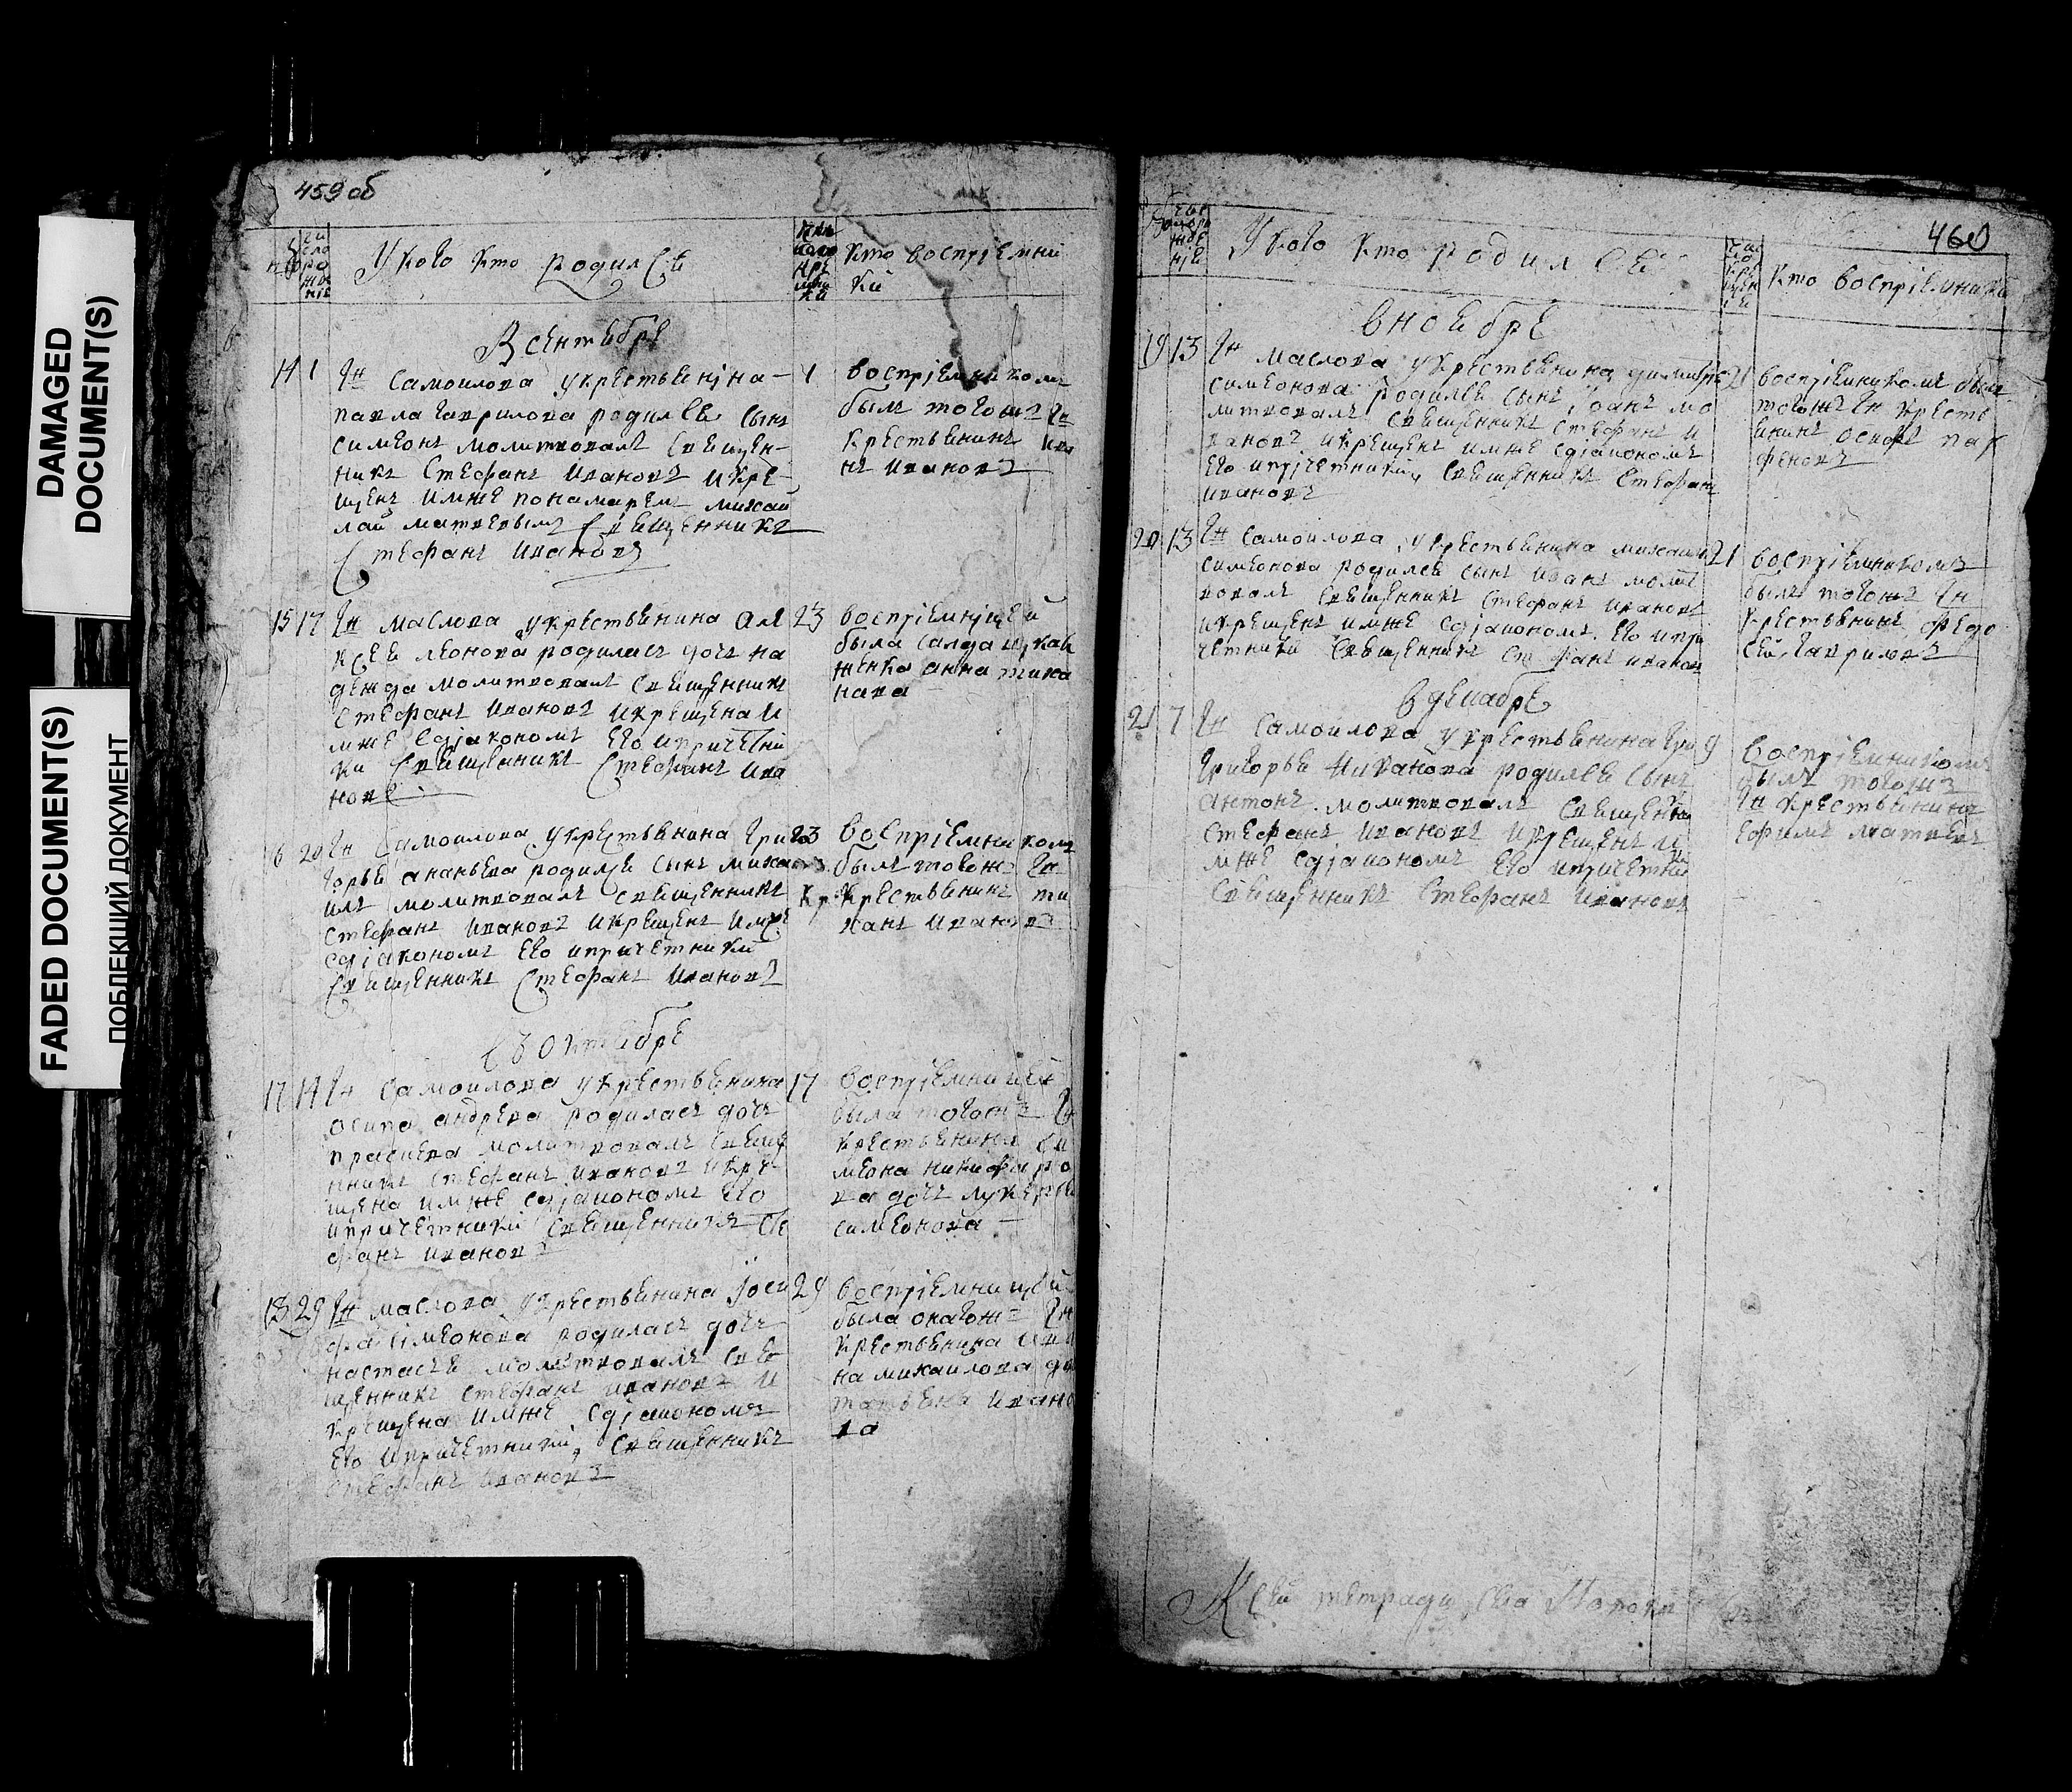 DAMAGED
DOCUMENT(S)
FADED DOCUMENT(S)
ПОБЛЕКШИЙ ДОКУМЕНТ
459 об
У кого кто родился
кто воспріемни
ки
В сентябре
14 1 дн самоилова у крестьянина
павла гаврилова родился сынъ
симеонъ молитвовалъ священ-
никъ Стефанъ Ивановъ и кре-
щенъ имже понамарем михаи
лай матвевымъ священникъ
Стефанъ Ивановъ
1 воспріемникомъ
былъ тогожъ дн
крестьянинъ ива
нъ ивановъ
15 17 дн маслова у крестьянина але
ксея леонова родилась дочь на
дежда молитвовалъ священникъ
Стефанъ Ивановъ и крещена и
мже с діакономъ его и причетни
ки Священникъ Стефанъ Ива
новъ
23 воспріемницей
была салдацкая
женка анна
16 20 дн Самоилова у крестьянина Гри
горья ананьева родился сынъ миха
илъ молитвовалъ священникъ
стефанъ ивановъ и крещенъ имже
с діакономъ его и причетники
Священникъ Стефанъ Ивановъ
23 воспріемникомъ
былъ тогож дн
крестьянинъ ти
ханъ ивановъ
В Октябре
17 14 дн Самоилова у крестьянина
осипа андрева родилась дочь
молитвовалъ свяще
нникъ Стефанъ Ивановъ и кре-
щена имже с діакономъ его
и причетники священникъ Сте
фанъ ивановъ
17 воспріемницей
была тогожъ дн
крестьянина си
меона никифаро
ва дочь лукерья
симеонова
18 29 дн маслова у крестьянина іоси
фа сімеонова родилась дочь
настасья молитвовалъ свя
щенникъ Стефанъ Ивановъ и
крещена имже с діакономъ
его и причетники, священникъ
Стефанъ Ивановъ
29 воспріемницей
была онагожъ дн
крестьянина ива
на михаилова до
татьяна ивано
ва
460
У кого кто родился
Кто воспріемники
в ноябре
19 13 дн маслова у крестьянина димитре
симеонова родился сынъ іоанъ мо
литвовалъ священникъ Стефанъ и
вановъ и крещенъ имже с діакономъ
его и прічетники, священникъ Стефанъ
ивановъ
21 воспріемникомъ былъ
тогожъ дн кресть
янинъ осипъ пар
феновъ
20 13 дн самоилова у крестьянина михаила
симеонова родился сынъ иванъ молит
вовалъ священникъ Стефанъ ивановъ
и крещенъ имже с діакономъ его и при
четники священникъ Стефанъ иванов
21 воспріемникомъ
былъ тогожъ дн
крестьянинъ федо
сей гавриловъ
в декабре
21 7 дн самоилова у крестьянина Гри
Григорья Чиванова родился сынъ
антонъ молитвовалъ священни
Стефанъ Ивановъ и крещенъ и
мже с діакономъ его и причетни
Священникъ Стефанъ Ивановъ
9 Воспріемникомъ
былъ тогожъ
дн крестьянинъ
ефимъ матвевъ
К сей тетради